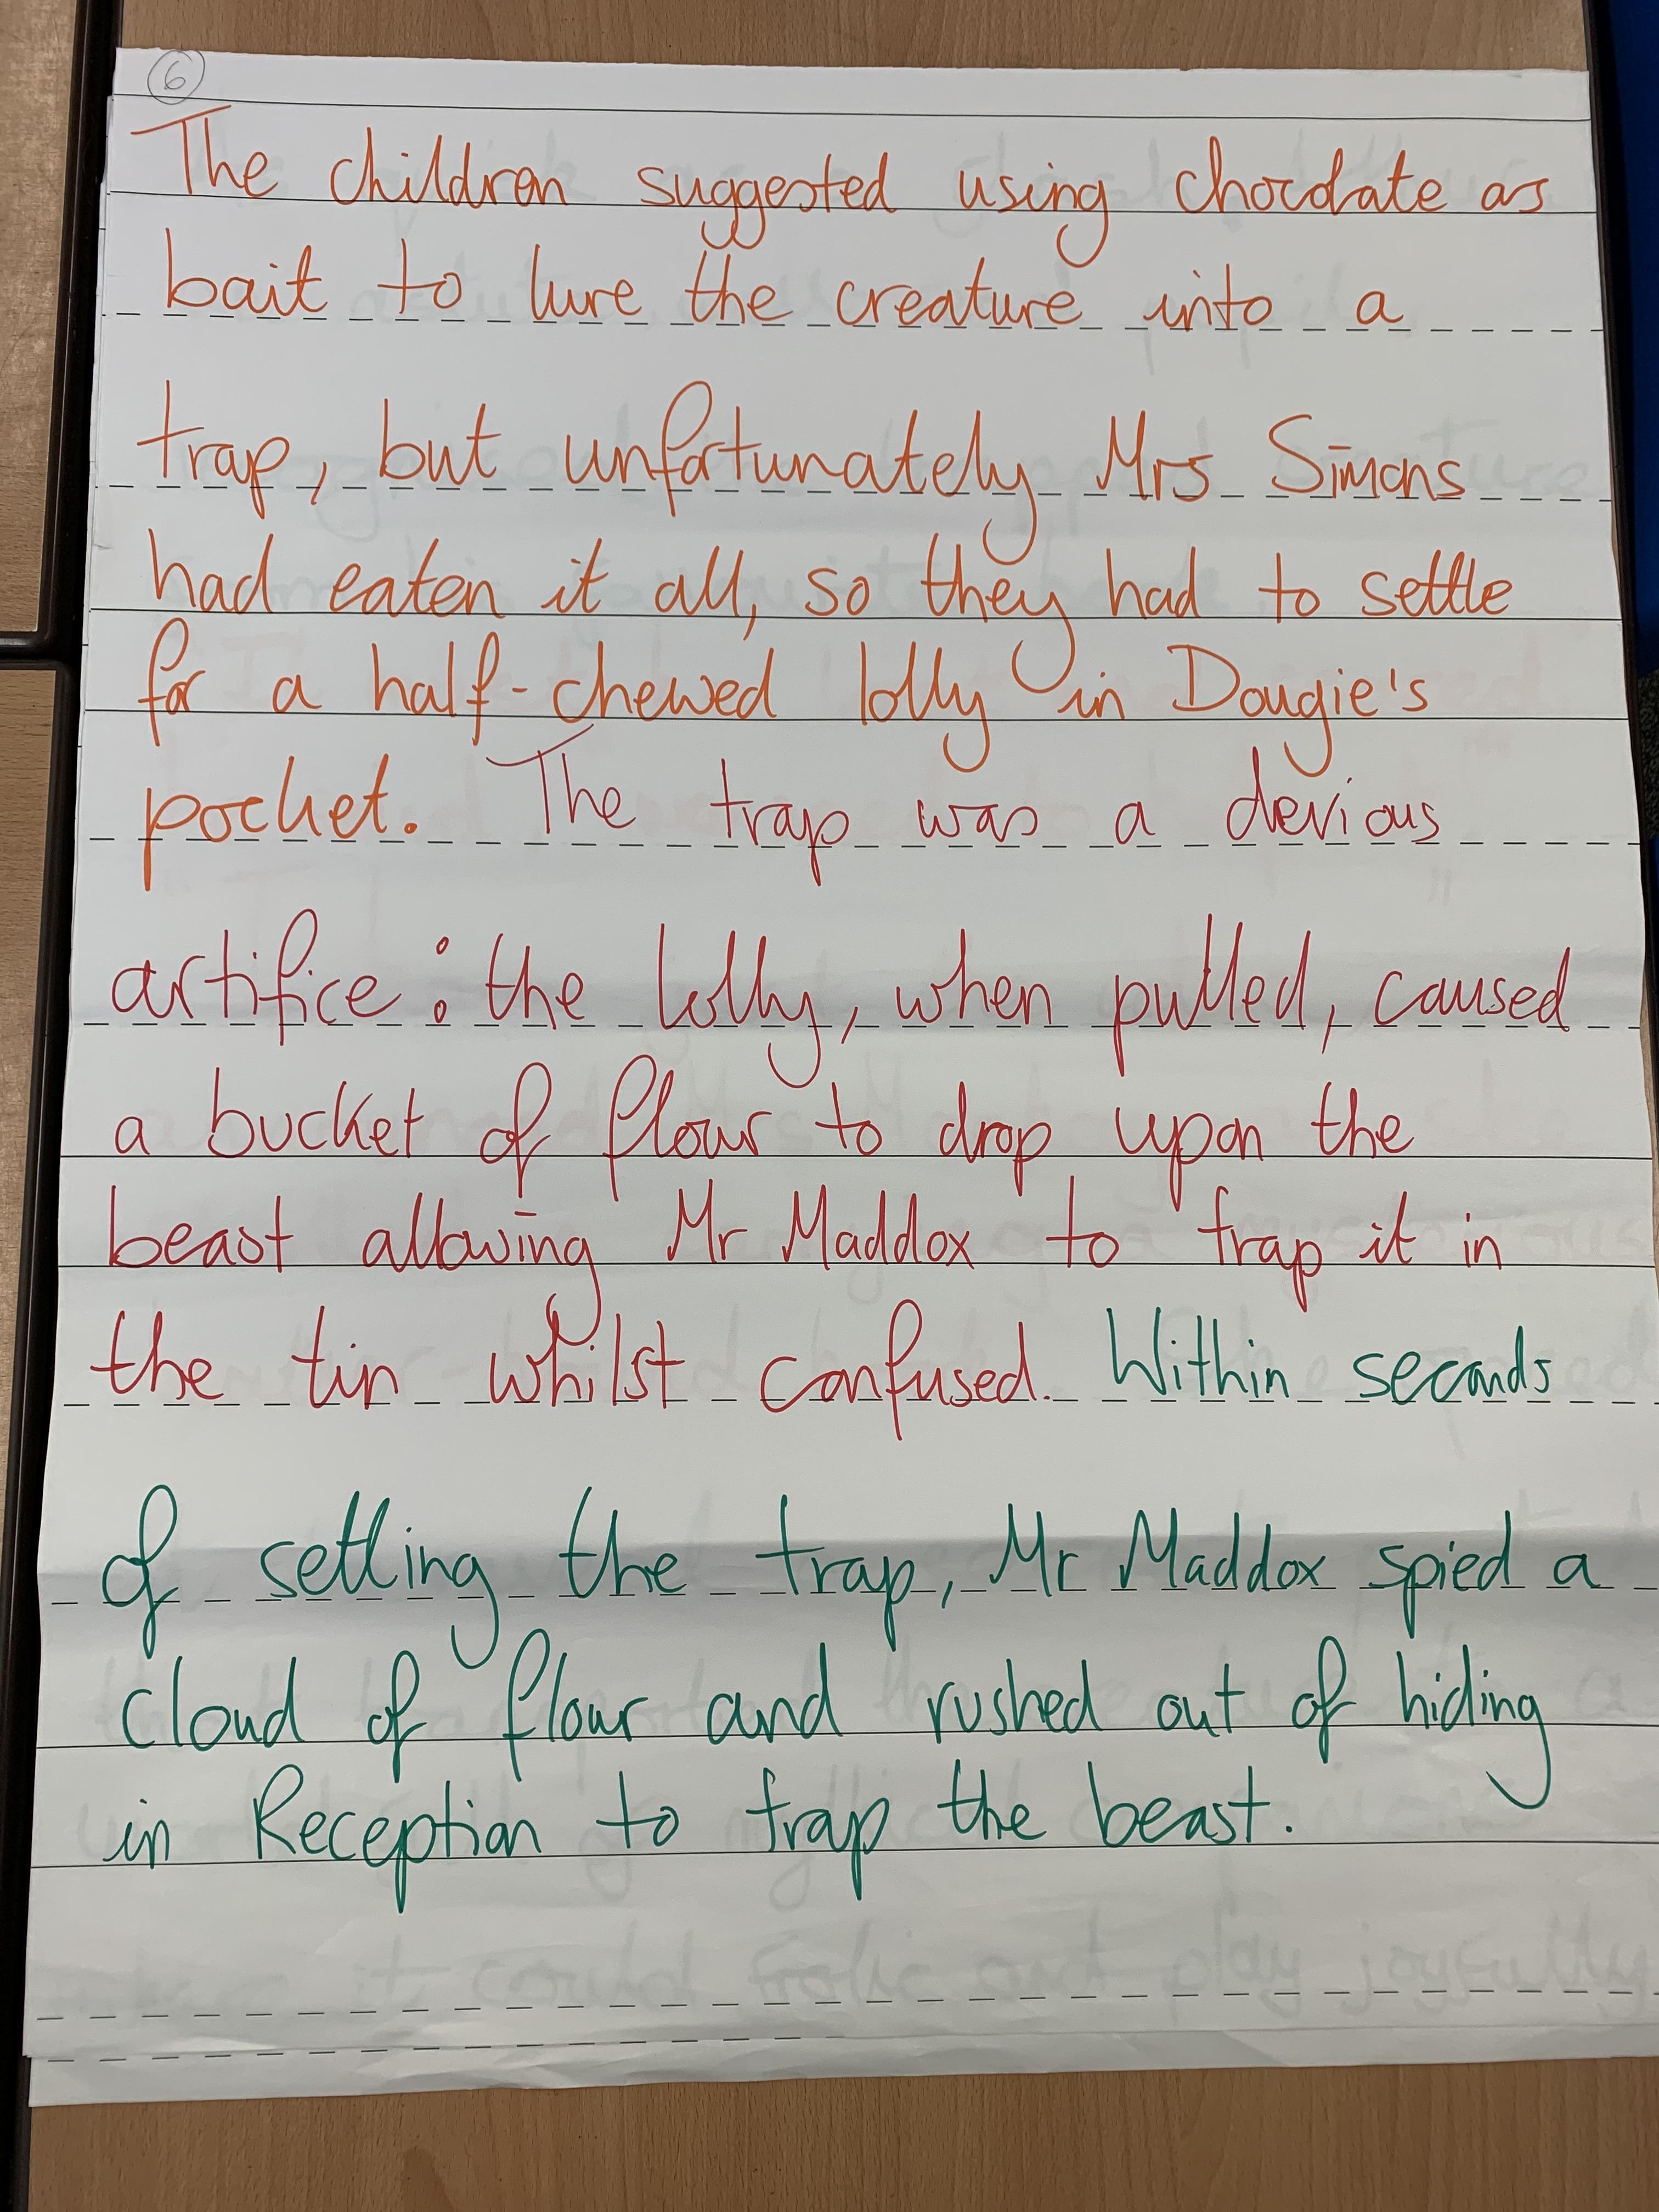 6
The children suggested using chocolate as
bait to lure the creature into a
trap, but unfortunately Mrs Simons
had eaten it all, so they had to settle
for a half-chewed lolly in Dougie's
pocket. The trap was a devious
artifice: the lolly, when pulled, caused
a bucket of flour to drop upon the
beast allowing Mr Maddox to trap it in
the tin whilst confused. Within seconds
of setting the trap, Mr Maddox spied a
cloud of flour and rushed out of hiding
in Reception to trap the beast.